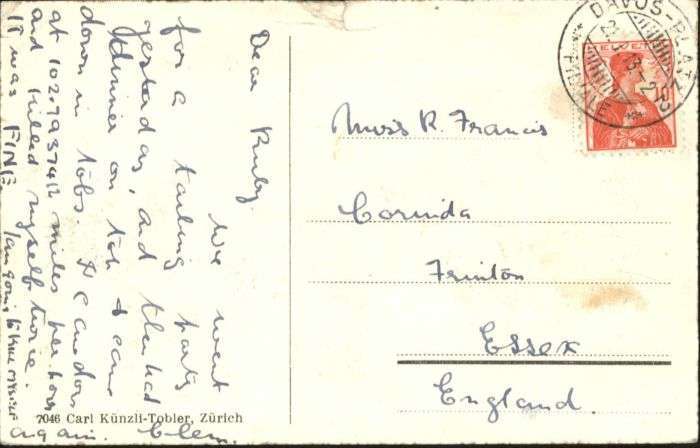 Dear Ruby.
We went
for a tailing party
yesterday, and then had
dinner on top & came
down in tobs. I came down
at 102.793742 miles per hour
and killed myself twice.
It was FINE. I am going to
again. Clem.
7046 Carl Künzli-Tobler, Zürich
DAVOS-PLATZ
HELVETIA
Miss R. Francis
Corinda
Frinton
Essex
England.